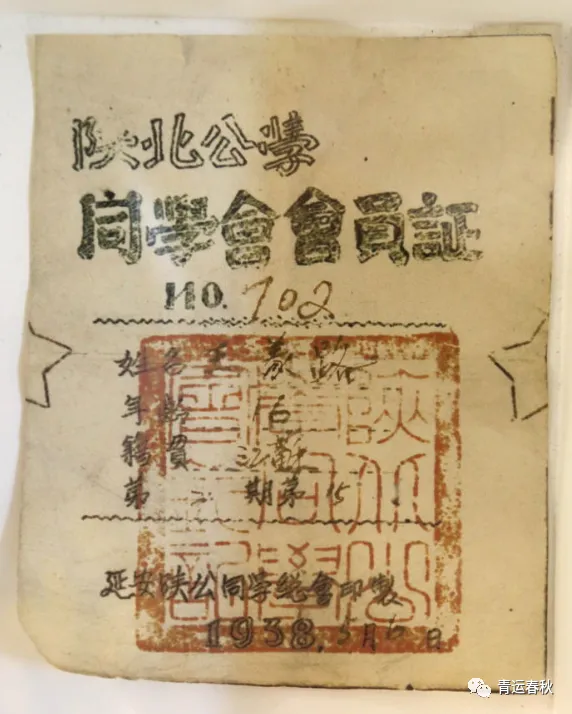 陕北公學
同學會會員証
NO. 702
姓名 王 路
年齡 伍
籍貫 江蘇
第 二 期第 15
延安陕公同学總會印製
1938, 5月6日
青运春秋